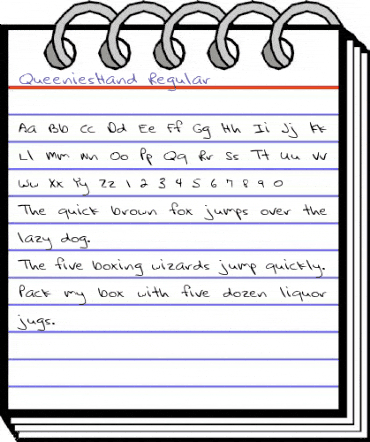 QueeniesHand Regular
Aa Bb Cc Dd Ee Ff Gg Hh Ii Jj Kk
Ll Mm Nn Oo Pp Qq Rr Ss Tt Uu Vv
Ww Xx Yy Zz 1 2 3 4 5 6 7 8 9 0
The quick brown fox jumps over the
lazy dog.
The five boxing wizards jump quickly.
Pack my box with five dozen liquor
jugs.